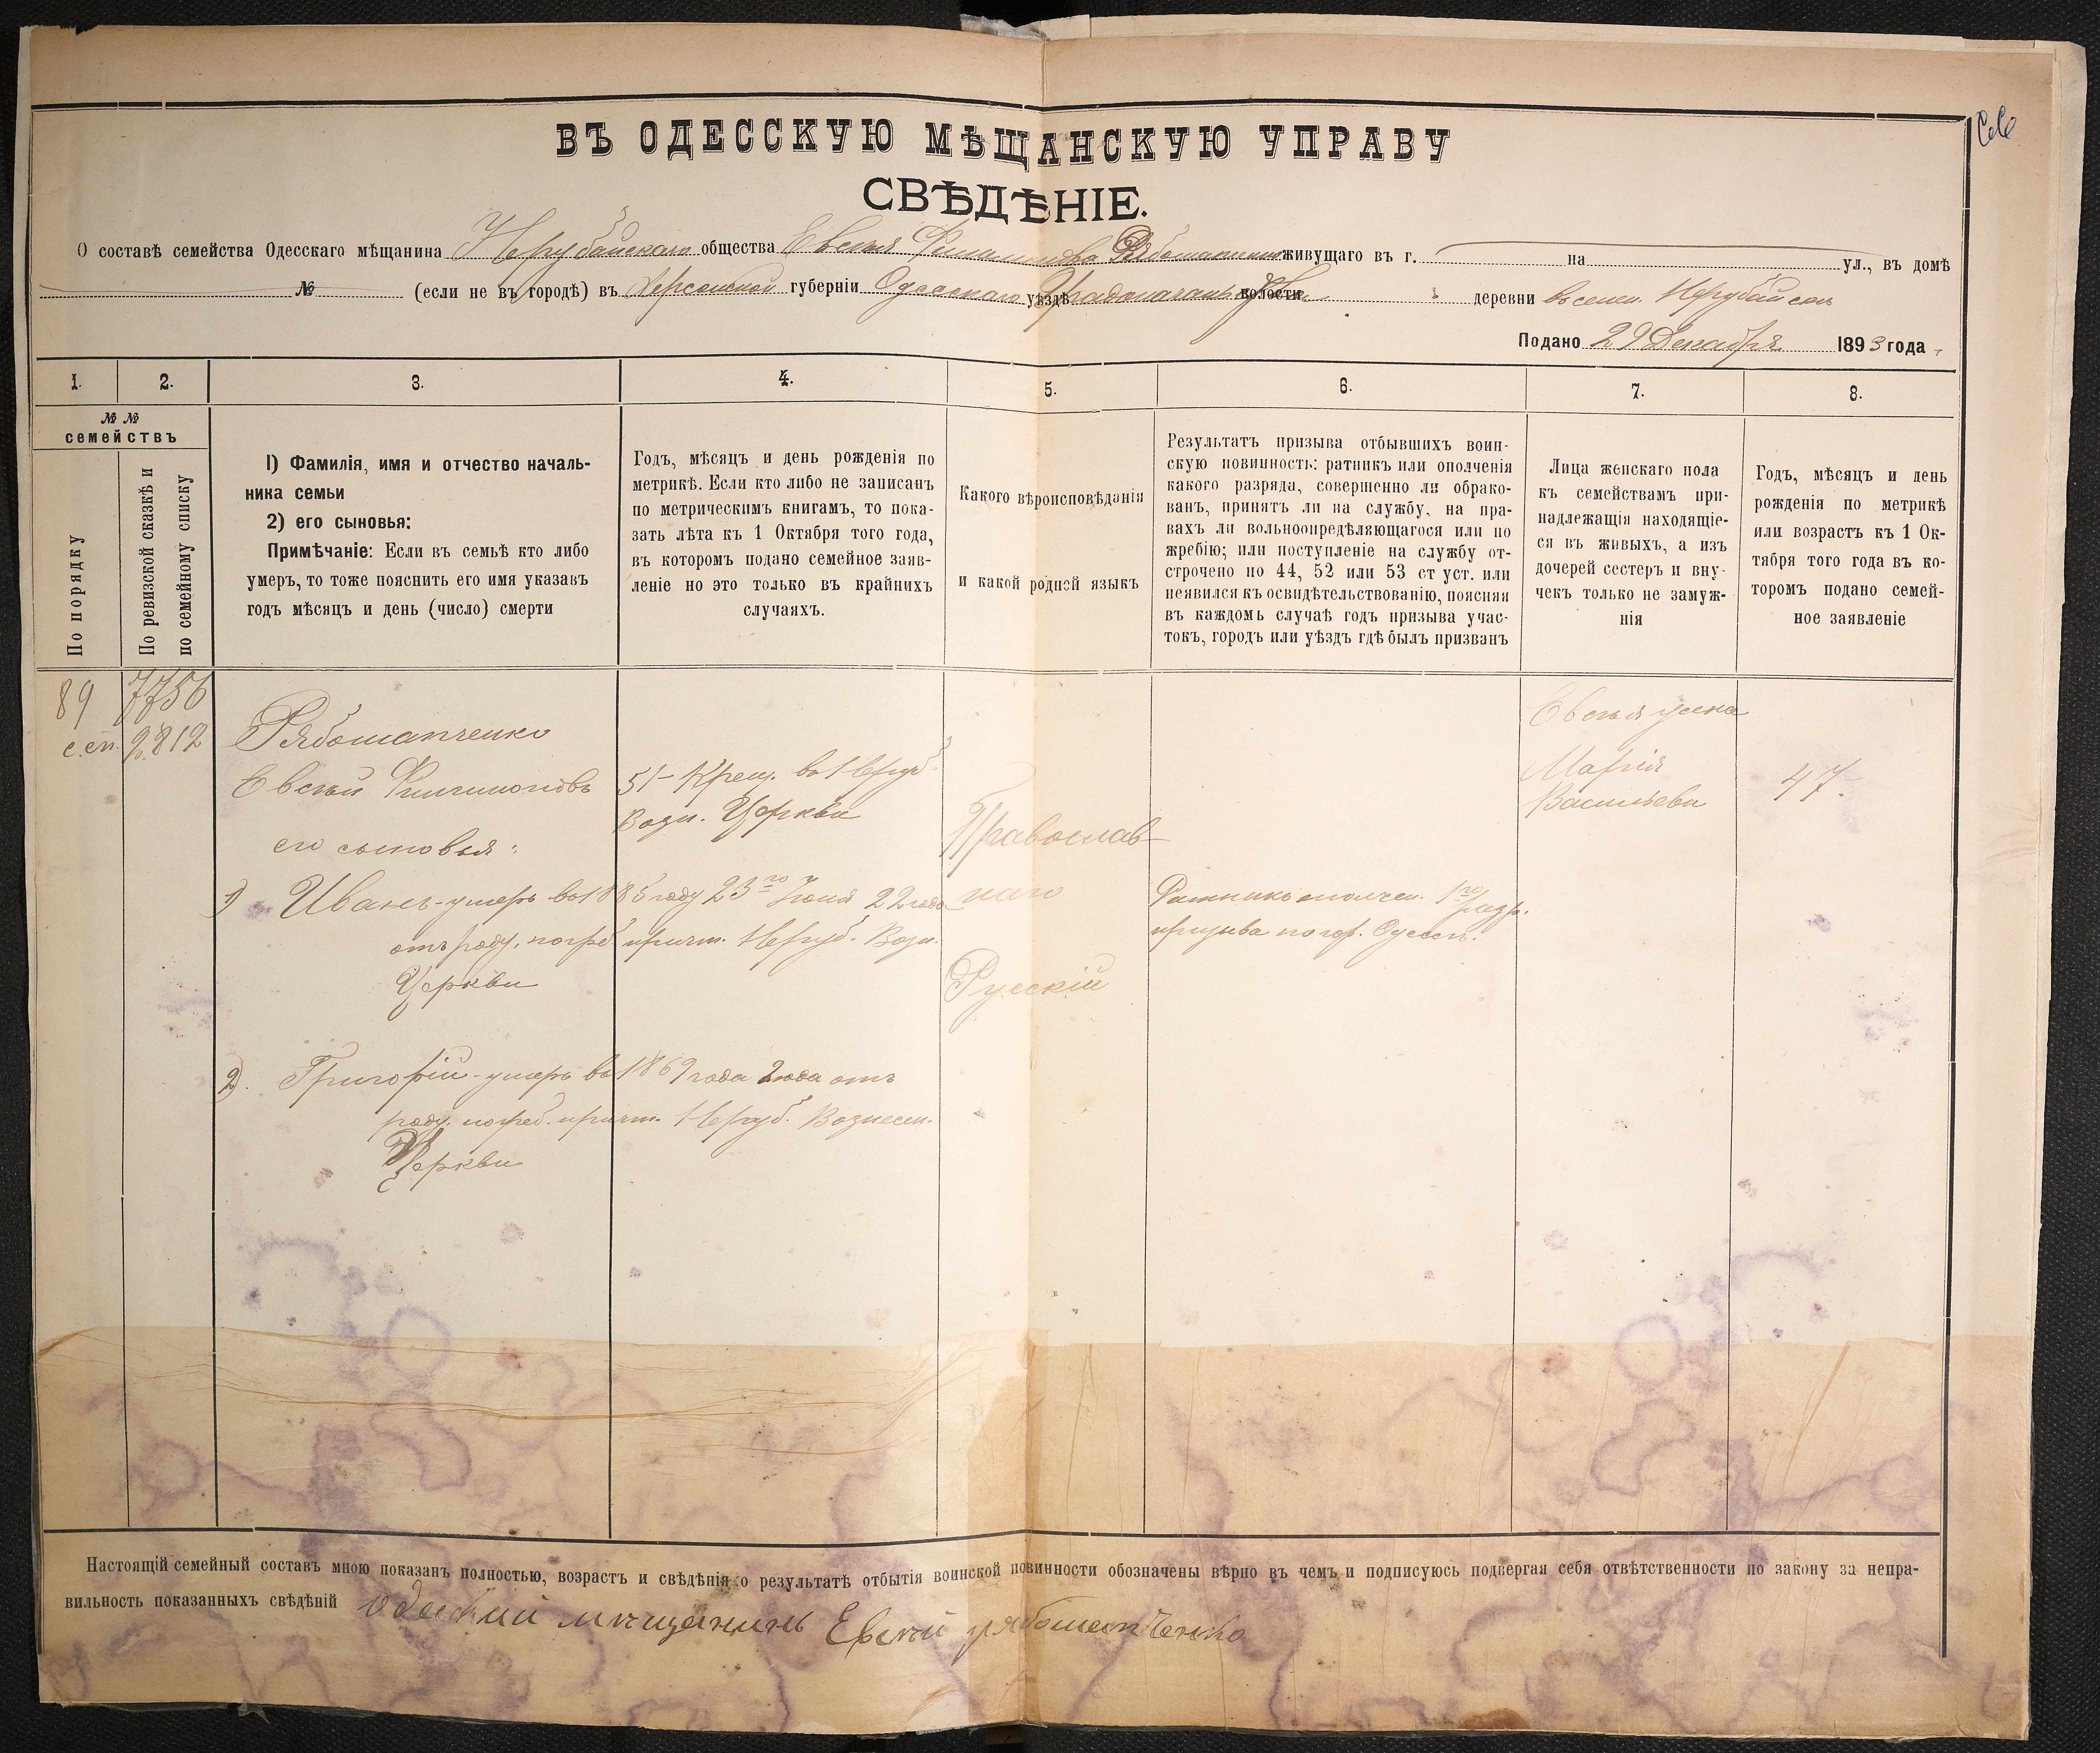 ВЪ ОДЕССКУЮ МѢЩАНСКУЮ УПРАВУ
СВѢДѢНІЕ.
О составѣ семейства Одесскаго мѣщанина Нерубайскаго общества Евсея Филимонова Рябошапченко живущаго въ г. на ул., въ домѣ
№ (если не въ городѣ) въ Херсонской губерніи Одесскаго уѣздѣ Градоначаль волости деревни въ селен. Нерубайскомъ
Подано 29 Декабря 1893 года
1. 2. 3. 4. 5. 6. 7. 8.
№ №
семействъ
По порядку
По ревизской сказкѣ и
по семейному списку
1) Фамилія, имя и отчество началь-
ника семьи
2) его сыновья:
Примѣчаніе: Если въ семьѣ кто либо
умеръ, то тоже пояснить его имя указавъ
годъ мѣсяцъ и день (число) смерти
Годъ, мѣсяцъ и день рожденія по
метрикѣ. Если кто либо не записанъ
по метрическимъ книгамъ, то пока-
зать лѣта къ 1 Октября того года,
въ которомъ подано семейное заяв-
леніе но это только въ крайнихъ
случаяхъ.
Какого вѣроисповѣданія
и какой родной языкъ
Результатъ призыва отбывшихъ воин-
скую повинность: ратникъ или ополченія
какого разряда, совершенно ли обрако-
ванъ, принятъ ли на службу, на пра-
вахъ ли вольноопредѣляющагося или по
жребію; или поступленіе на службу от-
строчено по 44, 52 или 53 ст уст. или
неявился къ освидѣтельствованію, поясняя
въ каждомъ случаѣ годъ призыва учас-
токъ, городъ или уѣздъ гдѣ былъ призванъ
Лица женскаго пола
къ семействамъ при-
надлежащія находящіе-
ся въ живыхъ, а изъ
дочерей сестеръ и вну-
чекъ только не замуж-
нія
Годъ, мѣсяцъ и день
рожденія по метрикѣ
или возрастъ къ 1 Ок-
тября того года въ ко-
торомъ подано семей-
ное заявленіе
89
с.сп.
7756
2812
Рябошапченко
Евсей Филимоновъ
его сыновья:
51 - Крещ. въ Неруб.
Возн. Церкви
1) Иванъ - умеръ въ 1885 году 23го Іюня 22 года
отъ роду, погреб. причт. Неруб. Возн.
Церкви
2). Григорій - умеръ въ 1869 года 2 года отъ
роду, погреб. причт. Неруб. Вознесен.
Церкви
Православ-
наго
Русскій
Ратникъ ополчен. 1го разр.
призыва по гор. Одессѣ.
Евсея жена
Марія
Васильева
47.
Настоящій семейный составъ мною показанъ полностью, возрастъ и свѣдѣнія о результатѣ отбытія воинской повинности обозначены вѣрно въ чемъ и подписуюсь подвергая себя отвѣтственности по закону за непра-
вильность показанныхъ свѣдѣній Одеский мещанинъ Евсей рябошапченко